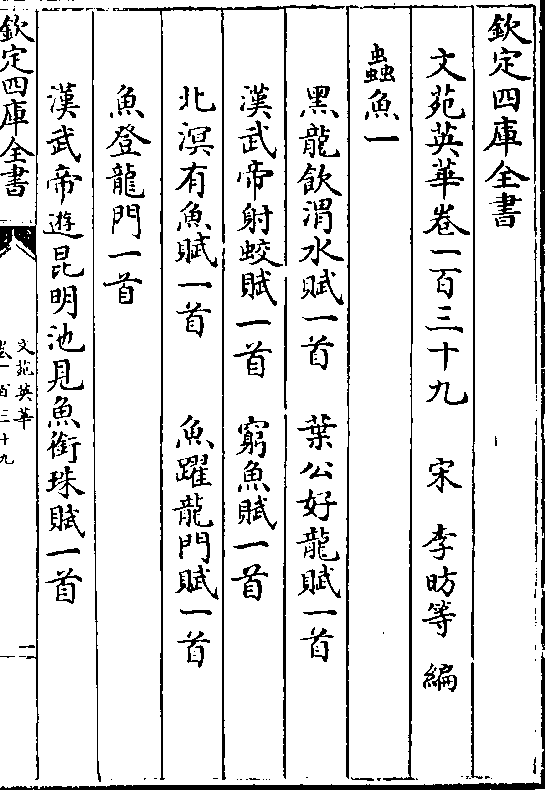 欽定四庫全書
文苑英華卷一百三十九 宋 李昉等 編
蟲魚一
黑龍飲渭水賦一首 葉公好龍賦一首
漢武帝射蛟賦一首 窮魚賦一首
北溟有魚賦一首 魚躍龍門賦一首
魚登龍門一首
漢武帝遊昆明池見魚銜珠賦一首
欽定四庫全書
文苑英華
卷一百三十九